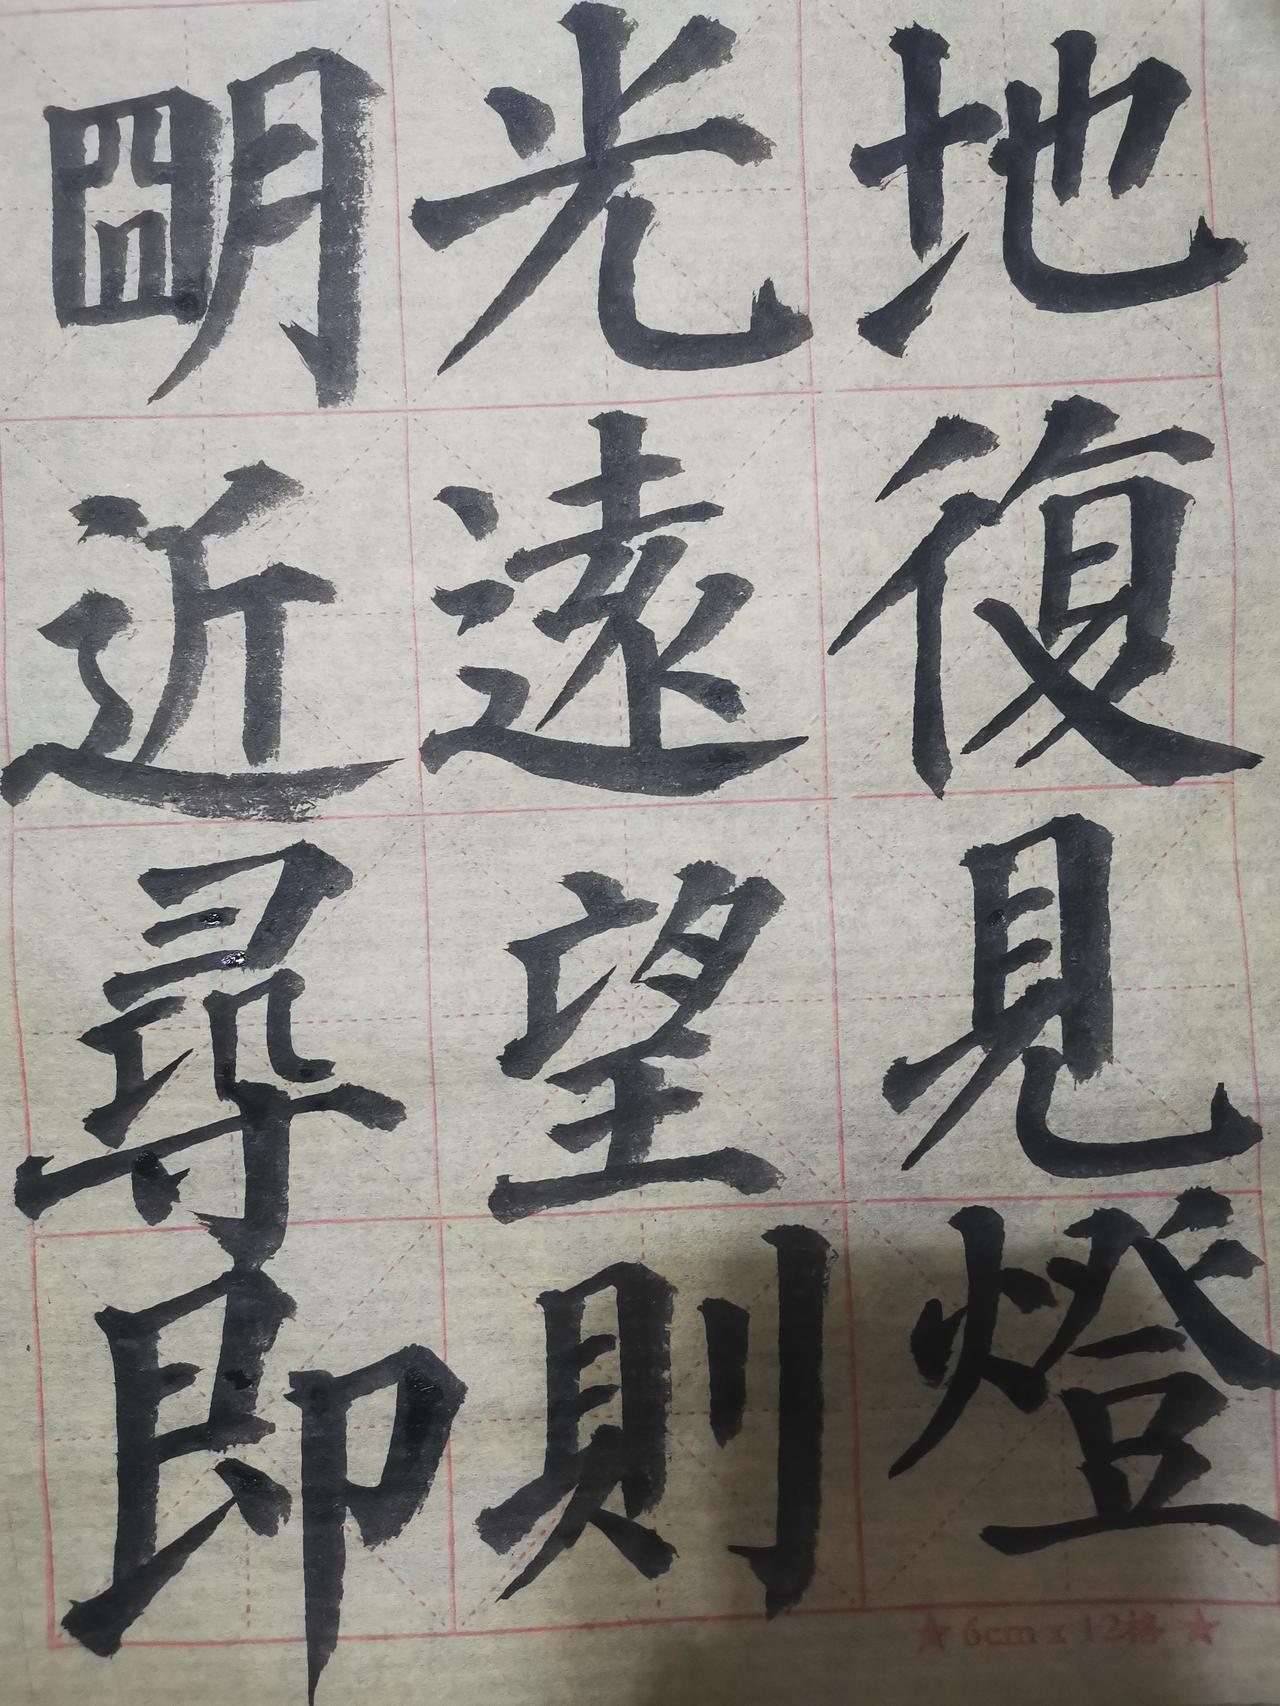 地復見燈
光遠望則
朙近尋即
★ 6cm x 12格 ★